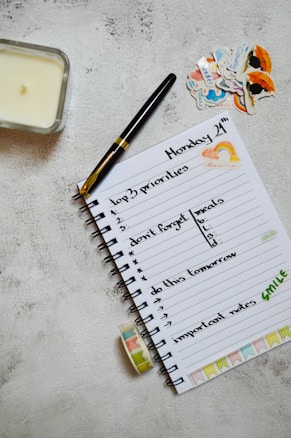 Monday 21th
top 3 priorities
1.
2.
3.
don't forget
meals
b.
l.
s.
d.
do this tomorrow
important notes
SMILE